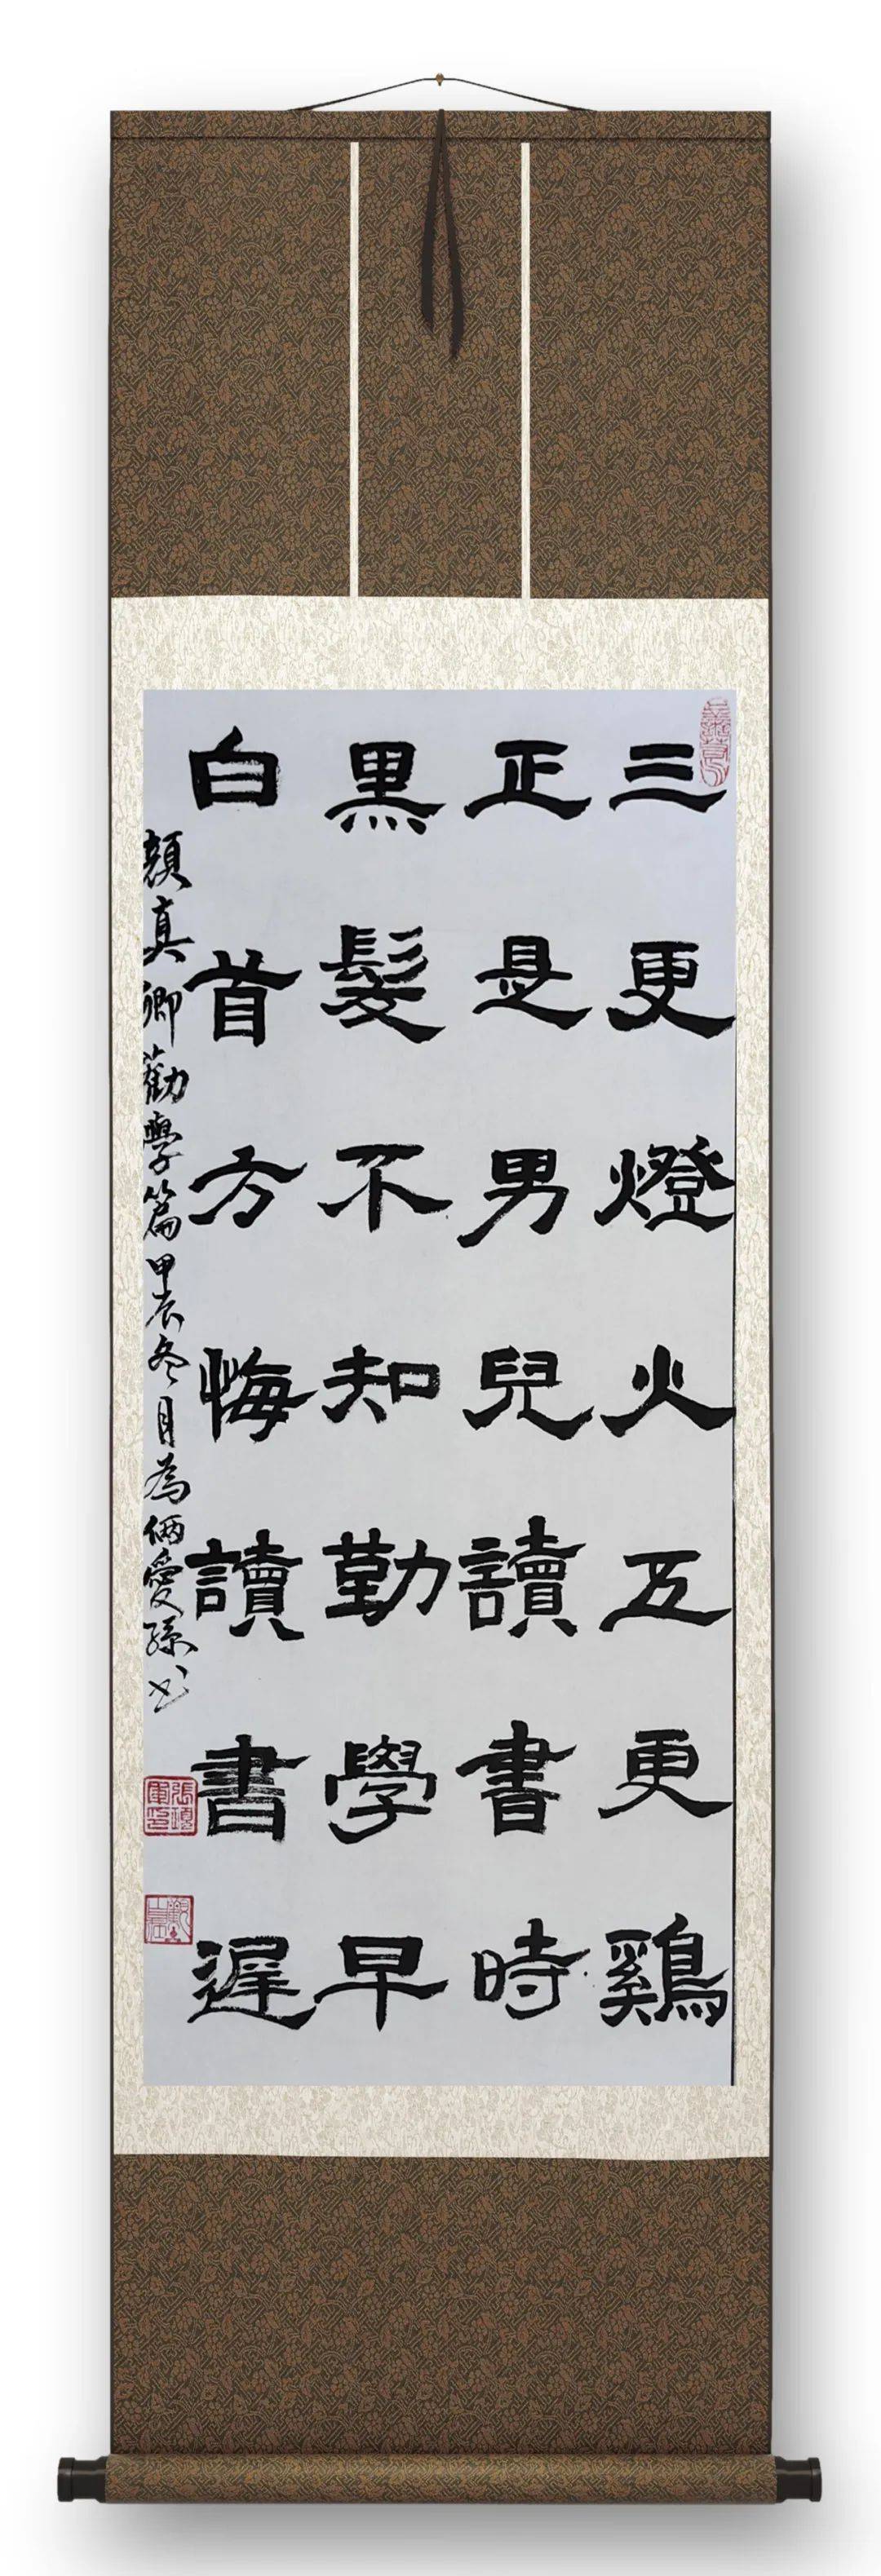 三更燈火五更鷄
正是男兒讀書時
黑髮不知勤學早
白首方悔讀書遲
顏真卿勸學篇甲辰冬月為倆愛孫书